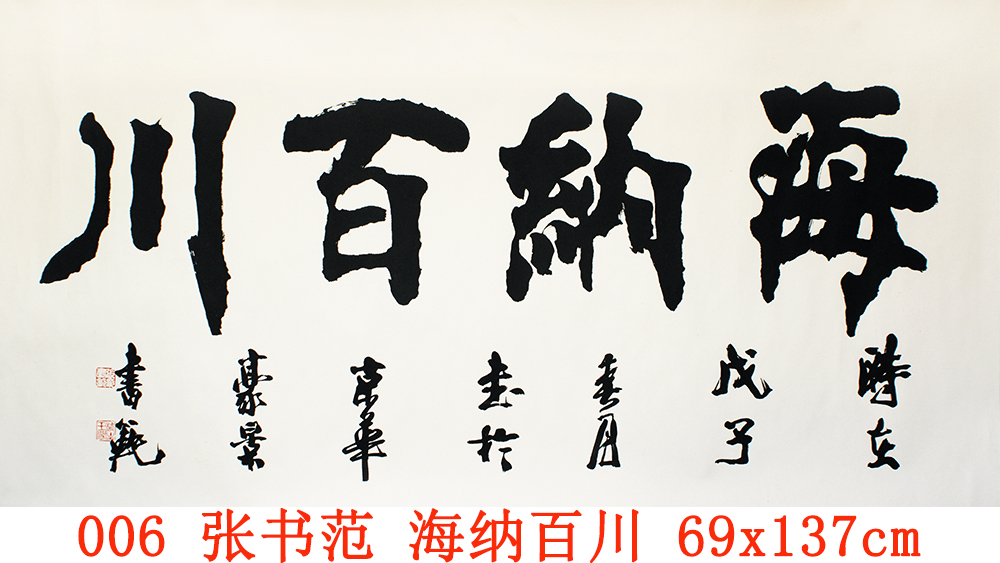 海納百川
時在
戊子
春月
書於
京華
景
書範
006 张书范 海纳百川 69x137cm